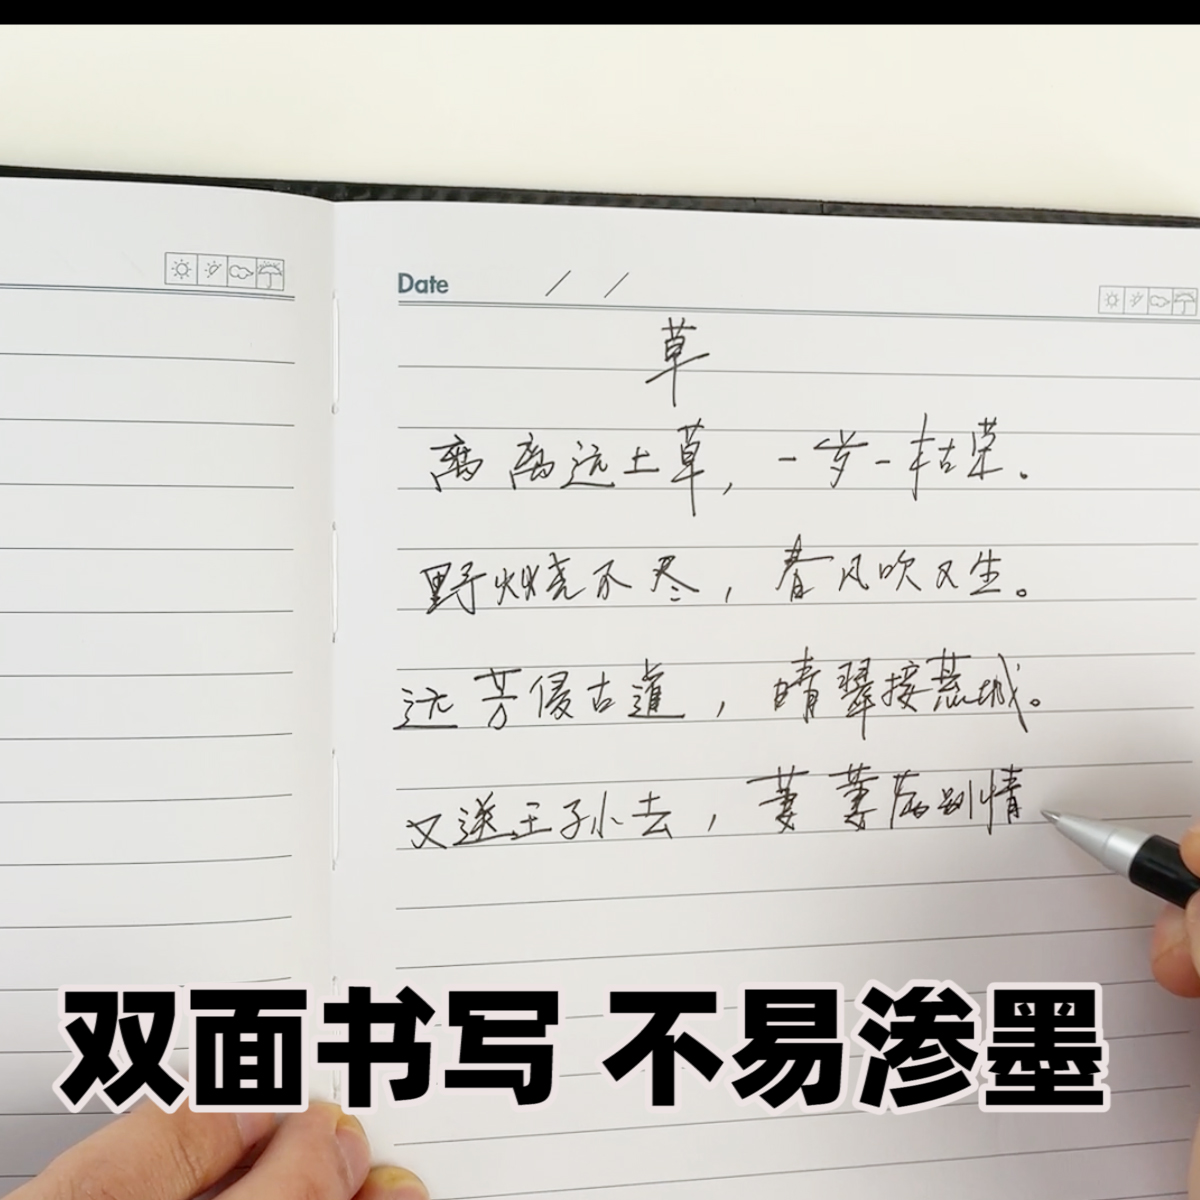 Date / /
草
离离远上草，一岁一枯荣。
野火烧不尽，春风吹又生。
远芳侵古道，晴翠接荒城。
又送王孙去，萋萋满别情
双面书写 不易渗墨